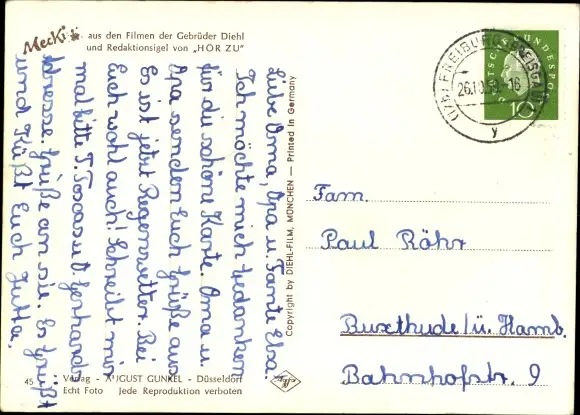 Mecki
aus den Filmen der Gebrüder Diehl
und Redaktionsigel von „HÖR ZU"
Liebe Oma, Opa u. Tante Elsa.
Ich möchte mich bedanken
für die schöne Karte. Oma u.
Opa senden Euch Grüße aus
Es ist jetzt Regenwetter. Bei
Euch wohl auch! Schreibt mir
mal bitte T. Toscas u. O. Gerhards
Adresse. Grüße an sie. Es grüßt
und küßt Euch Jutta.
Copyright by DIEHL-FILM, MÜNCHEN — Printed in Germany
(17b) FREIBURG (BREISGAU)
26.10.59-16
y
DEUTSCHE BUNDESPOST
10
Fam.
Paul Röhr
Buxtehude/ü. Hamb.
Bahnhofstr. 9
45
Verlag - AUGUST GUNKEL - Düsseldorf
Echt Foto Jede Reproduktion verboten
Agfa